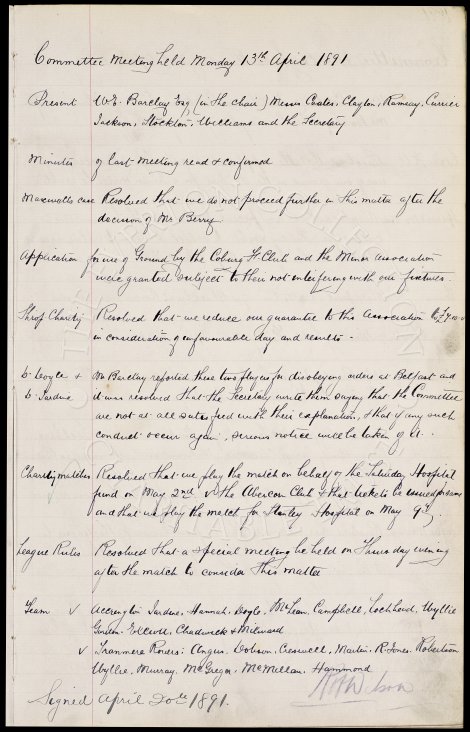 Committee Meeting held Monday 13th April 1891
Present W.E. Barclay Esq (in the chair) Messrs Coates, Clayton, Ramsay, Currier
Jackson, Stockton, Williams and the Secretary
Minutes of last meeting read & confirmed
Maxwells case Resolved that we do not proceed further in this matter after the
decision of Mr Berry
Application for use of Ground by the Coburg F. Club and the Minor Association
were granted subject to them not interfering with our fixtures.
Shrop Charity Resolved that we reduce our guarantee to this Association to
in consideration of unfavourable day and results -
D. Doyle & Mr Barclay reported these two players for disobeying orders at Belfast and
D. Jardine it was resolved that the Secretary write them saying that the Committee
are not at all satisfied with their explanation, & that if any such
conduct occur again, serious notice will be taken of it.
Charity matches Resolved that we play the match on behalf of the Saturday Hospital
fund on May 2nd v the Abercorn Club & that tickets be issued
and that we play the match for Stanley Hospital on May 9th
League Rules Resolved that a special meeting be held on Thursday evening
after the match to consider this matter
Team v Accrington Jardine, Hannah, Doyle, McLean, Campbell, Lochhead, Wyllie
Gordon, Elliott, Chadwick & Milward
v Tranmere Rovers: Angus, Dobson, Cresswell, Martin, R. Jones, Robertson
Wyllie, Murray, McGregor, McMillan, Hammond
Signed April 20th 1891.